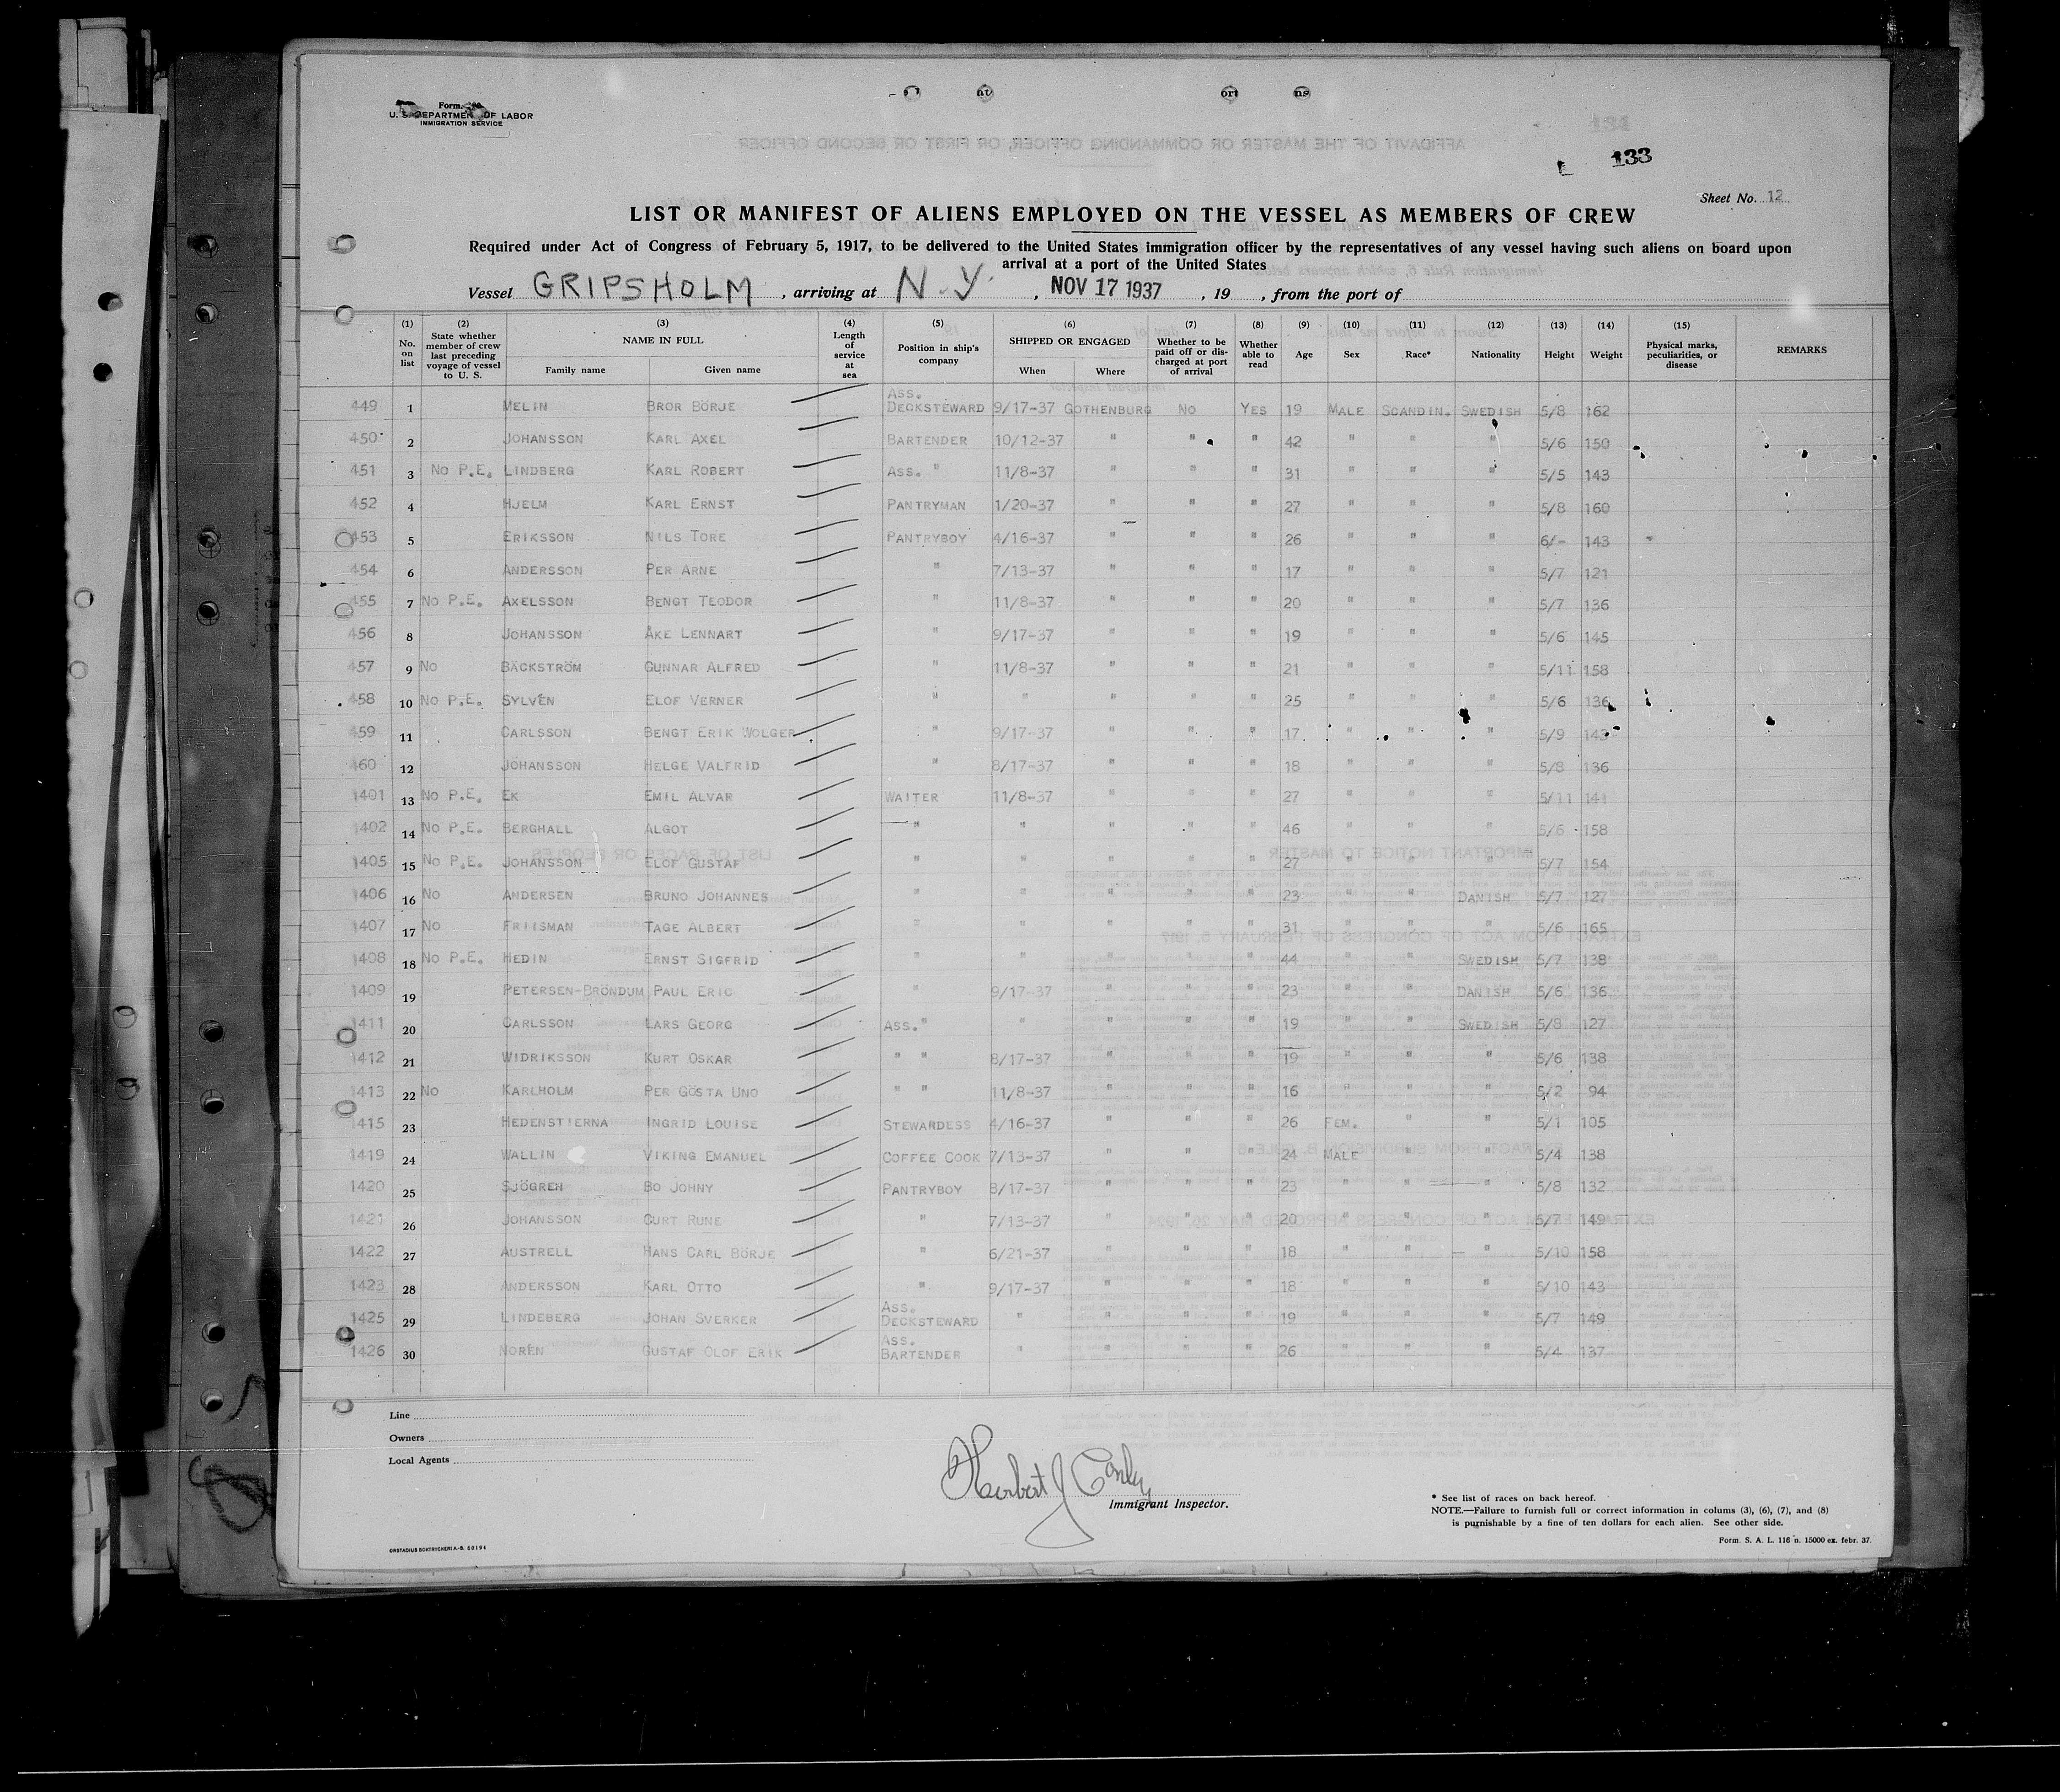 Form.
U. S. DEPARTMENT OF LABOR
IMMIGRATION SERVICE
133
Sheet No. 12
LIST OR MANIFEST OF ALIENS EMPLOYED ON THE VESSEL AS MEMBERS OF CREW
Required under Act of Congress of February 5, 1917, to be delivered to the United States immigration officer by the representatives of any vessel having such aliens on board upon
arrival at a port of the United States
Vessel GRIPSHOLM, arriving at N.Y., NOV 17 1937, 19, from the port of
(1) No. on list (2) State whether member of crew last preceding voyage of vessel to U. S. (3) NAME IN FULL Family name Given name (4) Length of service at sea (5) Position in ship's company (6) SHIPPED OR ENGAGED When Where (7) Whether to be paid off or discharged at port of arrival (8) Whether able to read (9) Age (10) Sex (11) Race* (12) Nationality (13) Height (14) Weight (15) Physical marks, peculiarities, or disease REMARKS
449 1 MELIN BROR BÖRJE ASS. DECKSTEWARD 9/17-37 GOTHENBURG NO YES 19 MALE SCANDIN. SWEDISH 5/8 162
450 2 JOHANSSON KARL AXEL BARTENDER 10/12-37 " " " 42 " " " 5/6 150
451 3 NO P.E. LINDBERG KARL ROBERT ASS. " 11/8-37 " " " 31 " " " 5/5 143
452 4 HJELM KARL ERNST PANTRYMAN 1/20-37 " " " 27 " " " 5/8 160
453 5 ERIKSSON NILS TORE PANTRYBOY 4/16-37 " " " 26 " " " 6/- 143
454 6 ANDERSSON PER ARNE " 7/13-37 " " " 17 " " " 5/7 121
455 7 NO P.E. AXELSSON BENGT TEODOR " 11/8-37 " " " 20 " " " 5/7 136
456 8 JOHANSSON ÅKE LENNART " 9/17-37 " " " 19 " " " 5/6 145
457 9 NO BÄCKSTRÖM GUNNAR ALFRED " 11/8-37 " " " 21 " " " 5/11 158
458 10 NO P.E. SYLVÉN ELOF VERNER " " " " " 25 " " " 5/6 136
459 11 CARLSSON BENGT ERIK WOLGER " 9/17-37 " " " 17 " " " 5/9
460 12 JOHANSSON HELGE VALFRID " 8/17-37 " " " 18 " " " 5/8 136
1401 13 NO P.E. EK EMIL ALVAR WAITER 11/8-37 " " " 27 " " " 5/11 141
1402 14 NO P.E. BERGHALL ALGOT " " " " " 46 " " " 5/6 158
1405 15 NO P.E. JOHANSSON ELOF GUSTAF " " " " " 27 " " " 5/7 154
1406 16 NO ANDERSEN BRUNO JOHANNES " " " " " 23 " " DANISH 5/7 127
1407 17 NO FRIISMAN TAGE ALBERT " " " " " 31 " " " 5/6 165
1408 18 NO P.E. HEDIN ERNST SIGFRID " " " " " 44 " " SWEDISH 5/7 138
1409 19 PETERSEN-BRÖNDUM PAUL ERIC " 9/17-37 " " " 23 " " DANISH 5/6 136
1411 20 CARLSSON LARS GEORG ASS. " " " " " 19 " " SWEDISH 5/8 127
1412 21 WIDRIKSSON KURT OSKAR " " 8/17-37 " " " 19 " " " 5/6 138
1413 22 NO KARLHOLM PER GÖSTA UNO " " 11/8-37 " " " 16 " " " 5/2 94
1415 23 HEDENSTIERNA INGRID LOUISE STEWARDESS 4/16-37 " " " 26 FEM. " " 5/1 105
1419 24 WALLIN VIKING EMANUEL COFFEE COOK 7/13-37 " " " 24 MALE " " 5/4 138
1420 25 SJÖGREN BO JOHNY PANTRYBOY 8/17-37 " " " 23 " " " 5/8 132
1421 26 JOHANSSON CURT RUNE " 7/13-37 " " " 20 " " " 5/7 149
1422 27 AUSTRELL HANS CARL BÖRJE " 6/21-37 " " " 18 " " " 5/10 158
1423 28 ANDERSSON KARL OTTO " 9/17-37 " " " 18 " " " 5/10 143
1425 29 LINDEBERG JOHAN SVERKER ASS. DECKSTEWARD " " " " 19 " " " 5/7 149
1426 30 NORÉN GUSTAF OLOF ERIK ASS. BARTENDER " " " " 26 " " " 5/4 137
Line
Owners
Local Agents
Herbert J Conly
Immigrant Inspector.
* See list of races on back hereof.
NOTE.—Failure to furnish full or correct information in colums (3), (6), (7), and (8)
is punishable by a fine of ten dollars for each alien. See other side.
ORSTADIUS BOKTRYCKERI A.-B. 60194
Form. S. A. L. 116 n. 15000 ex. febr. 37.